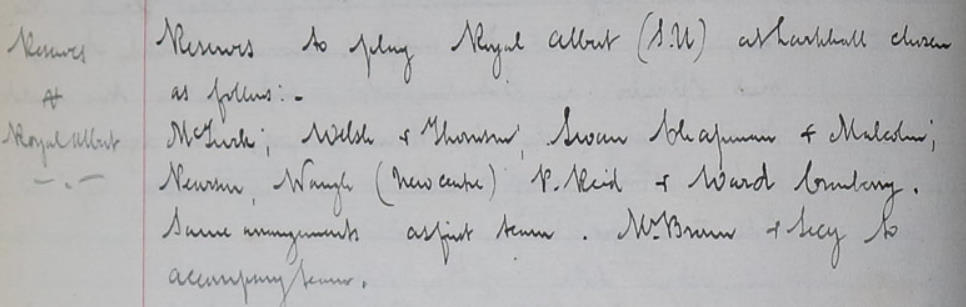 Reserves
v
Royal Albert
Reserves to play Royal Albert (S.U) at Larkhall chosen
as follows:-
McGurk; Welsh & Thomson; Swan Chapman & Malcolm;
Waugh (New centre) P. Reid & Ward
Same arrangements as first team. Mr. Brown & Secy to
accompany team.